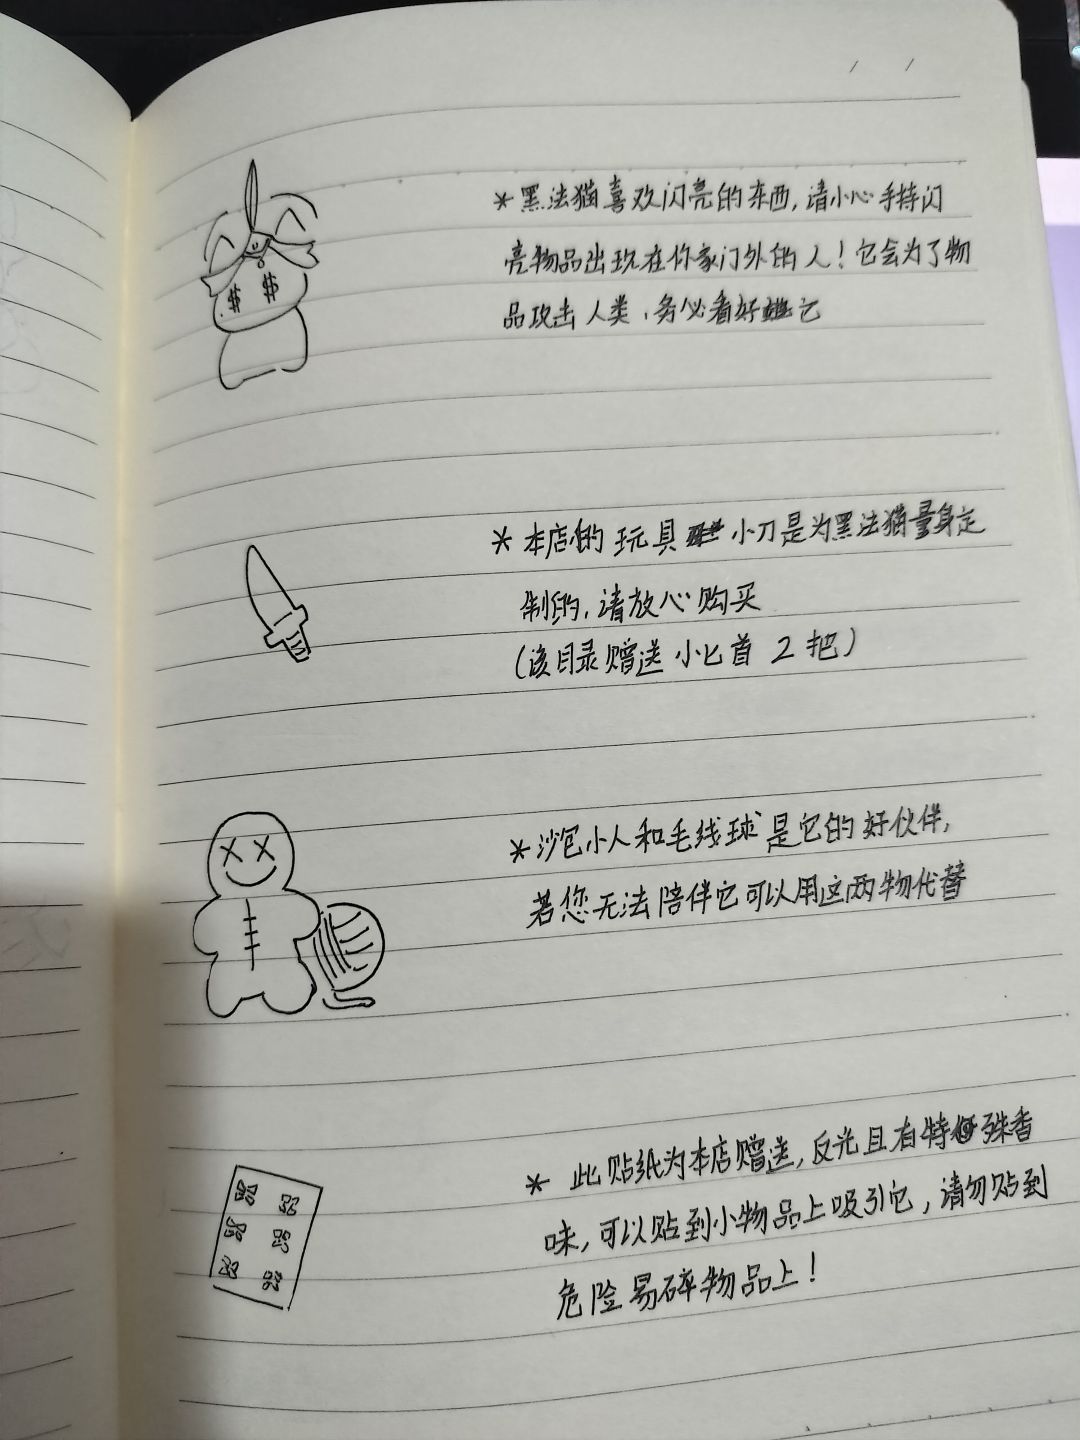 *黑法猫喜欢闪亮的东西,请小心手持闪
亮物品出现在你家门外的人!它会为了物
品攻击人类,务必看好它
*本店的玩具小刀是为黑法猫量身定
制的,请放心购买
(该目录赠送小匕首2把)
*沙包小人和毛线球是它的好伙伴,
若您无法陪伴它可以用这两物代替
*此贴纸为本店赠送,反光且有特殊香
味,可以贴到小物品上吸引它,请勿贴到
危险易碎物品上!
$ $